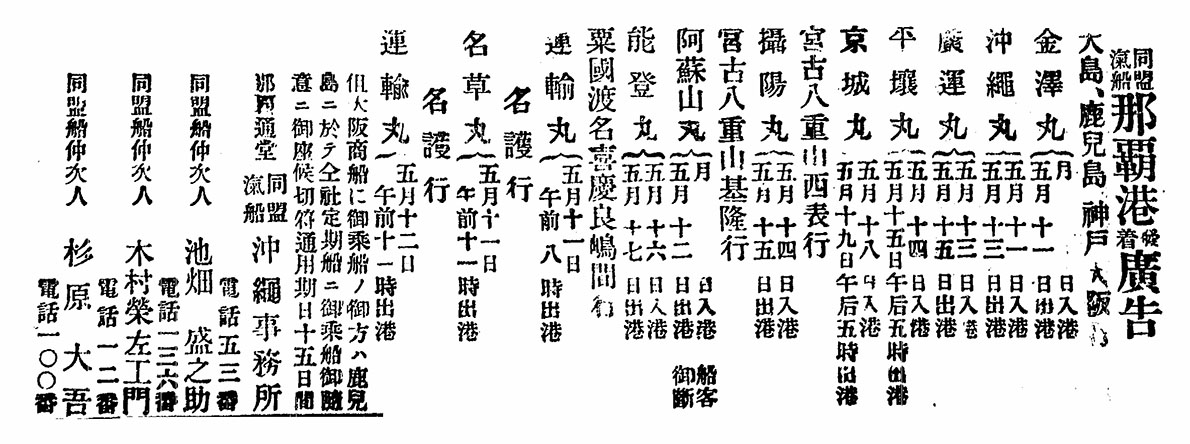 同盟汽船那覇港発着廣告
大島、鹿兒島、神戸、大阪行
金澤丸 月 日入港
五月十一日出港
沖繩丸 五月十一日入港
五月十三日出港
廣運丸 五月十三日入港
五月十五日出港
平壤丸 五月十四日入港
五月十五日午后五時出港
京城丸 五月十八日入港
五月十九日午后五時出港
宮古八重山西表行
攝陽丸 五月十四日入港
五月十五日出港
宮古八重山基隆行
阿蘇山丸 月 日入港
五月十二日出港 船客御断
能登丸 五月十六日入港
五月十七日出港
粟國渡名喜慶良嶋間行
運輸丸 五月十一日
午前八時出港
名護行
名草丸 五月十一日
午前十一時出港
名護行
運輸丸 五月十二日
午前十一時出港
但大阪商船に御乘船ノ御方ハ鹿兒
島ニ於テ仝社定期船ニ御乘船御隨
意ニ御座候切符通用期日十五日間
那覇通堂 同盟汽船 沖繩事務所
電話五三番
同盟船仲次人 池畑盛之助
電話一三六番
同盟船仲次人 木村榮左工門
電話一二番
同盟船仲次人 杉原大吾
電話一〇〇番